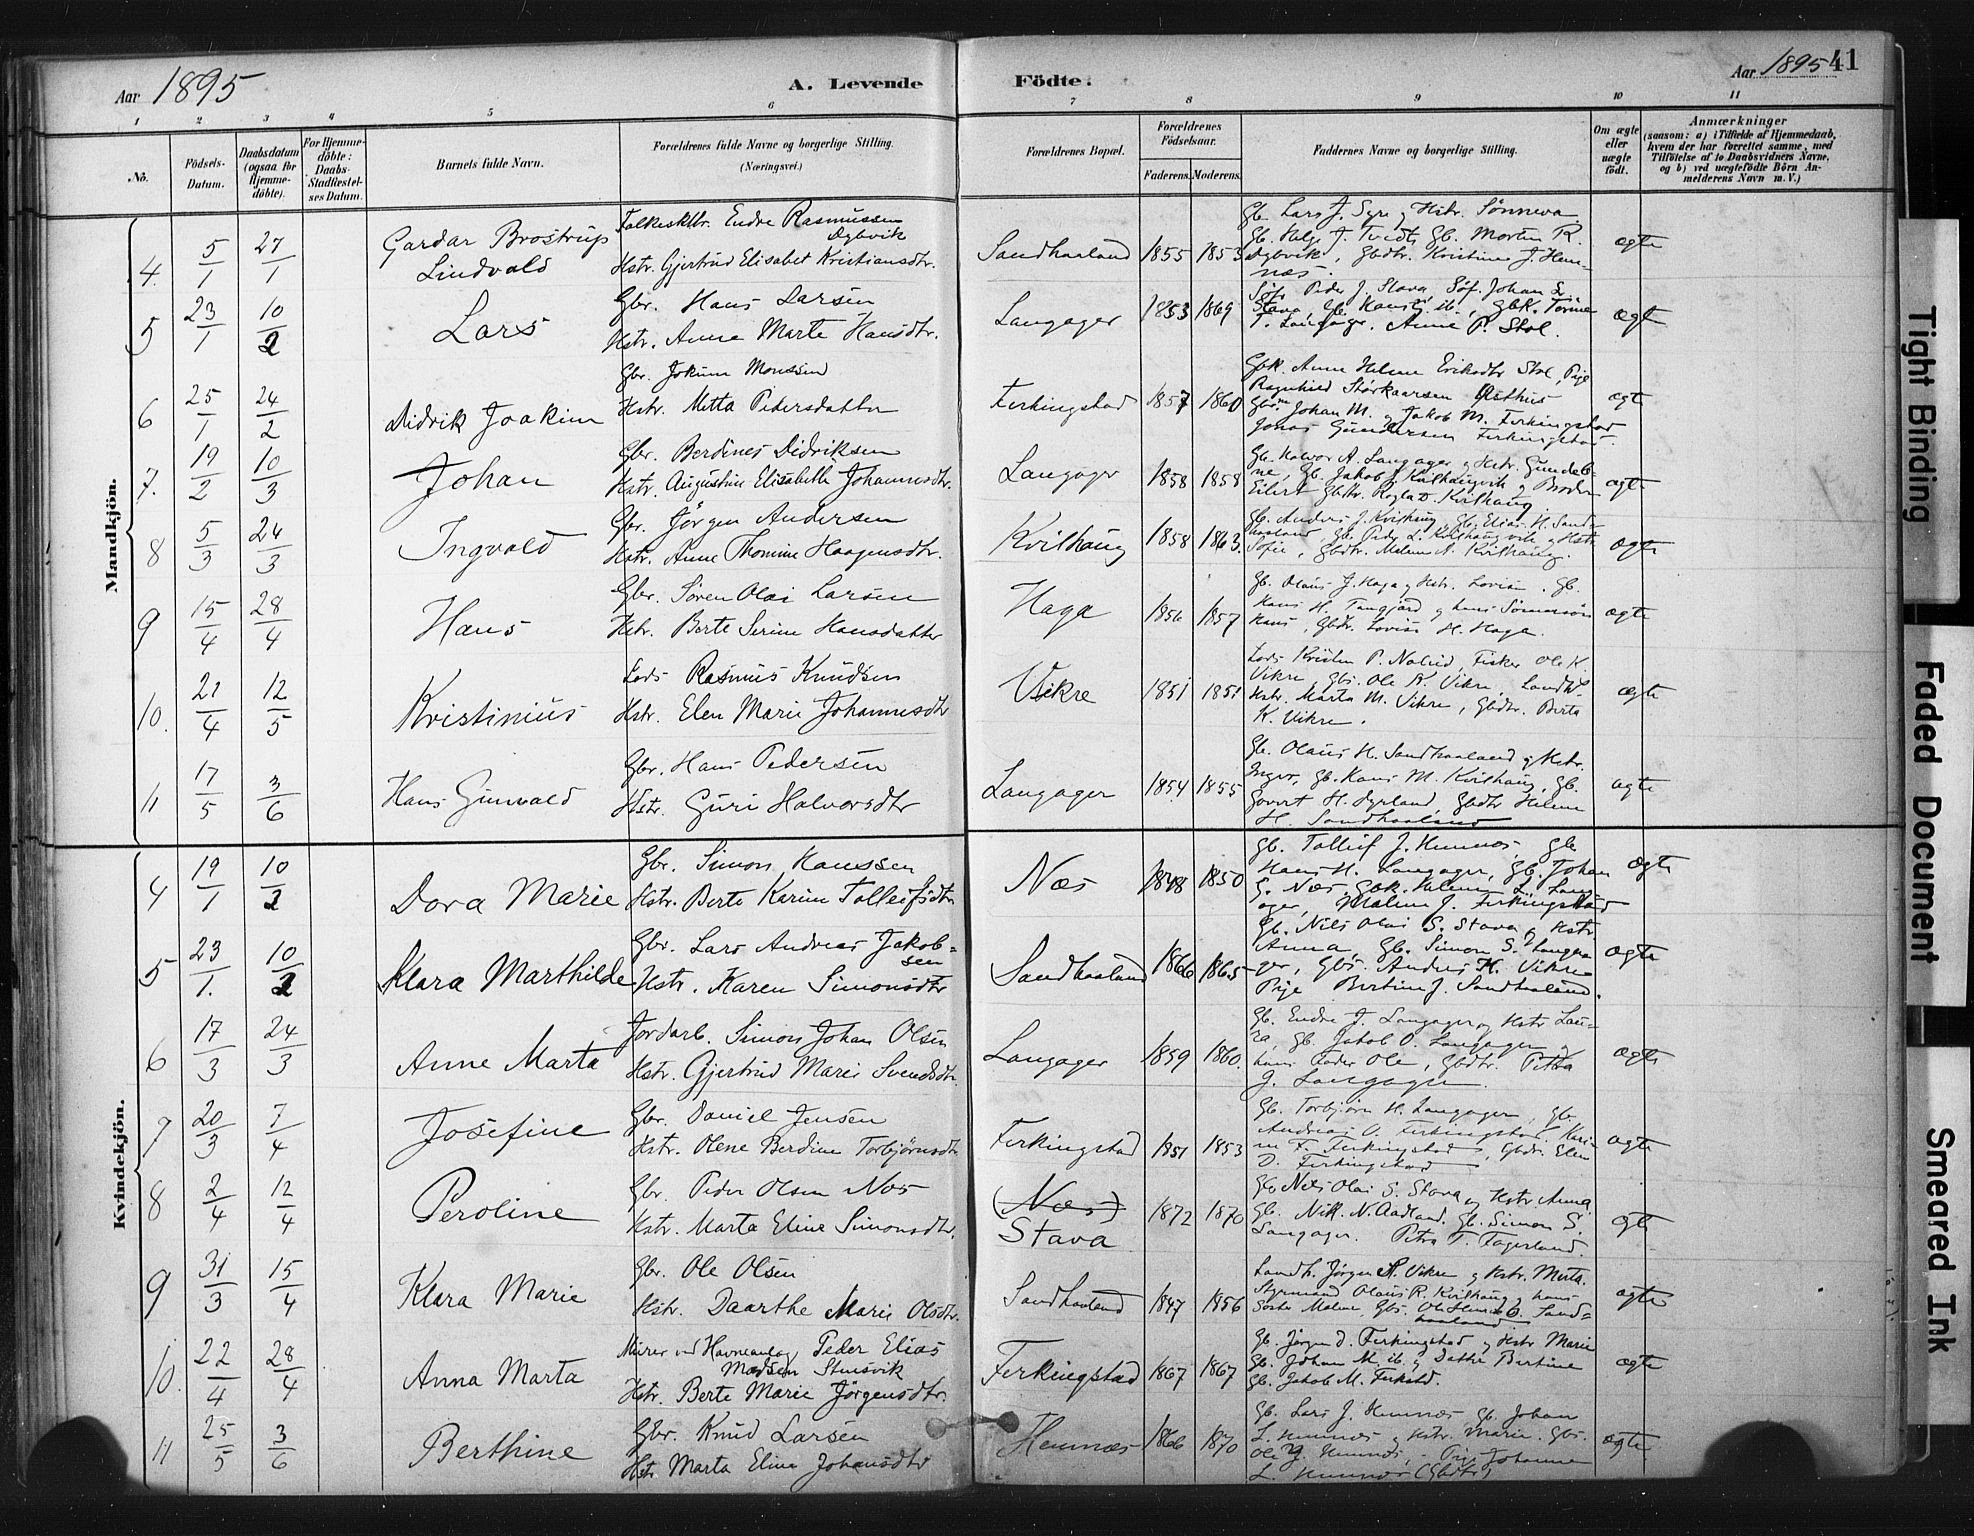 Aar 1895
A. Levende
Födte.
Aar 1895 41
1 2 3 4 5 6 7 8 9 10 11
No.
Födsels-Datum.
Daabsdatum (ogsaa for Hjemme-döbte).
For Hjemme-döbte: Daabs-Stadfæstel-ses Datum.
Barnets fulde Navn.
Forældrenes fulde Navne og borgerlige Stilling.
(Næringsvei.)
Forældrenes Bopæl.
Forældrenes Födselsaar.
Faderens. Moderens.
Faddernes Navne og borgerlige Stilling.
Om ægte eller uægte födt.
Anmærkninger
(saasom: a) i Tilfælde af Hjemmedaab, hvem der har forrettet samme, med Tilföielse af to Daabsvidners Navne, og b) ved uægtefödte Börn An-melderens Navn m. V.)
Mandkjön.
4. 5/1 27/1 Gardar Brostrup Lindvald
Endre Rasmussen Dybvik
Hstr. Gjertrud Elisabet Kristiansdtr.
Sandhaaland 1855 1853
Gb. Lars J. Syre og Hstr. Sönneva
Gb. Helge J. Tvedt, Gb. Morten R.
Dybvik, Gbdtr. Kristine J. Hem-
næs.
ægte
5 23/1 10/2 Lars
Gbr. Hans Larsen
Hstr. Anne Marte Hansdtr.
Langager 1853 1869
Peder J. Stava, Johan
Anne P. Stol.
ægte
6 25/1 24/2 Didrik Joakim
Gbr. Jokum Monssen
Hstr. Metta Pedersdatter
Ferkingstad 1857 1860
Gbk. Anne Helene Eriksdtr Stol, Pige
Ragnhild
Johan M. og Jakob M. Ferkingstad
Jonas Gundersen Ferkingstad.
ægte
7. 19/2 10/3 Johan
Gbr. Berdines Didriksen
Hstr. Augustine Elisabeth Johannesdtr.
Langager 1858 1858
Gb. Halvor A. Langager og Hstr.
Eilert Kvilhaug
ægte
8 5/3 24/3 Ingvald
Gbr. Jörgen Andersen
Hstr. Anne Thomine Haagensdtr.
Kvilhaug 1858 1863.
Gb. Anders J. Kvilhaug, Gb. Elias H. Sand-
haaland, Gb. Peder L. Kvilhaugvik og Hstr.
Sofie, Gbdtr. Malene A. Kvilhaug.
ægte
9 15/4 28/4 Hans
Gbr. Sören Olai Larsen
Hstr. Berte Serine Hansdatter
Haga 1856 1857
Gb. Olaus J. Haga og Hstr. Lovise. Gb.
Hans H. Tangjerd og hans
Hans, Gbdtr. Lovise H. Haga.
ægte
10. 21/4 12/5 Kristinius
Lods Rasmus Knudsen
Hstr. Elen Marie Johannesdtr
Vikre 1851 1851
Lods Kristen P. Fisker Ole K.
Vikre, Gbs. Ole K. Vikre,
Hstr. Marta M. Vikre, Gbdtr. Berta
K. Vikre.
ægte
11 17/5 3/6 Hans Gunvald
Gbr. Hans Pedersen
Hstr. Guri Halvorsdtr
Langager 1854 1855
Gb. Olaus H. Sandhaaland og Hstr.
Inger, Gb. Hans M. Kvilhaug, Gb.
Govert H. Gbdtr Helene
H. Sandhaaland
ægte
Kvindekjön.
4 19/1 10/2 Dora Marie
Gbr. Simon Hanssen
Hstr. Berte Karine Tolleifsdtr
Næs 1848 1850
Gb. Tolleif J. Hemnæs, Gb.
Hans H. Langager, Gb. Johan
S. Næs, Gbk. Helene L. Lang-
ager, Malene J. Ferkingstad
ægte
5 23/1. 10/2 Klara Marthilde
Gbr. Lars Andreas Jakob-
sen
Hstr. Karen Simonsdtr
Sandhaaland 1866 1865
Gb. Nils Olai S. Stava og Hstr
Anna, Gb. Simon S. Langa-
ger, Gbs. Anders K. Vikre
Pige Bertine J. Sandhaaland.
ægte
6 17/3 24/3 Anne Marta
Jordarb. Simon Johan Olsen
Hstr. Gjertrud Marie Svendsdtr.
Langager 1859 1860.
Gb. Endre J. Langager og Hstr Lau-
ra, Gb. Jakob O. Langager og
hans Fader Ole, Gbdtr. Petra
J. Langager.
ægte
7 20/3 7/4 Josefine
Gbr. Daniel Jensen
Hstr. Olene Berdine Torbjörnsdtr
Ferkingstad 1851 1853
Gb. Torbjörn H. Langager, Gb.
Andreas O. Ferkingstad, Kari-
ne F. Ferkingstad, Gbdtr. Elen
D. Ferkingstad
ægte
8 2/4 12/4 Peroline
Gbr. Peder Olsen Næs
Hstr. Marta Eline Simonsdtr.
(Næs)
Stava 1872 1870
Gb Nils Olai S. Stava og Hstr Anna
Gb. Nik. N. Aadland, Gb. Simon S.
Langager. Petra T. Fagerland.
ægte
9 31/3 15/4 Klara Marie
Gbr. Ole Olsen
Hstr. Daarthe Marie Olsdtr.
Sandhaaland 1847 1856
Landh. Jörgen A. Vikre og Hstr. Merta.
Styrmand Olaus R. Kvilhaug, hans
Söster Malene Gbs. Ole O. Sand-
haaland
ægte
10. 22/4 28/4 Anna Marta
Murer ved Havneanlæg Peder Elias
Madsen Stensvik
Hstr. Berte Marie Jörgensdtr.
Ferkingstad 1867 1867
Gb. Jörgen D. Ferkingstad og Hstr Marie
Gb. Johan M. ib. og Datter Bertine
Gb. Jakob M. Ferkstd.
ægte
11 25/5 3/6 Berthine
Gbr. Knud Larsen
Hstr. Marta Eline Johansdtr
Hemnæs 1866 1870
Gb. Lars J. Hemnæs, Gb. Johan
L. Hemnæs og Hstr. Marie. Gbs.
Ole Hemnæs, Pige Johanne
L. Hemnæs (Gbdtr)
ægte
Tight Binding
Faded Document
Smeared Ink